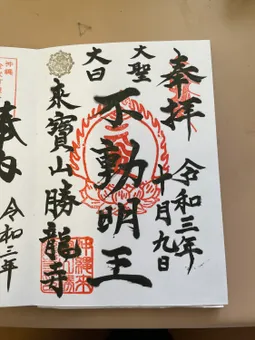 奉拝
令和三年
十月九日
大聖
不動明王
大日
寶山勝龍寺
奉
令和三年